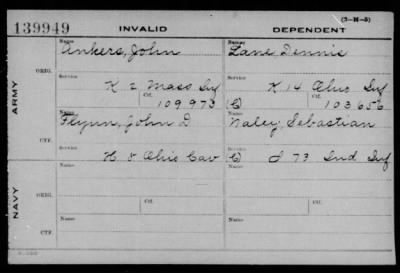 (3-H-5)
139949 INVALID DEPENDENT
Name Name
Ankers, John Lane, Dennis
ORIG. Service Service
K 2 Mass Inf K 14 Ohio Inf
Ctf. Ctf.
109973 (C) 103656
ARMY
Name Name
Flynn, John D Naley, Sebastian
CTF. Service Service
H 5 Ohio Cav (C) I 73 Ind Inf
Name Name
ORIG. Ctf. Ctf.
NAVY
Name Name
CTF.